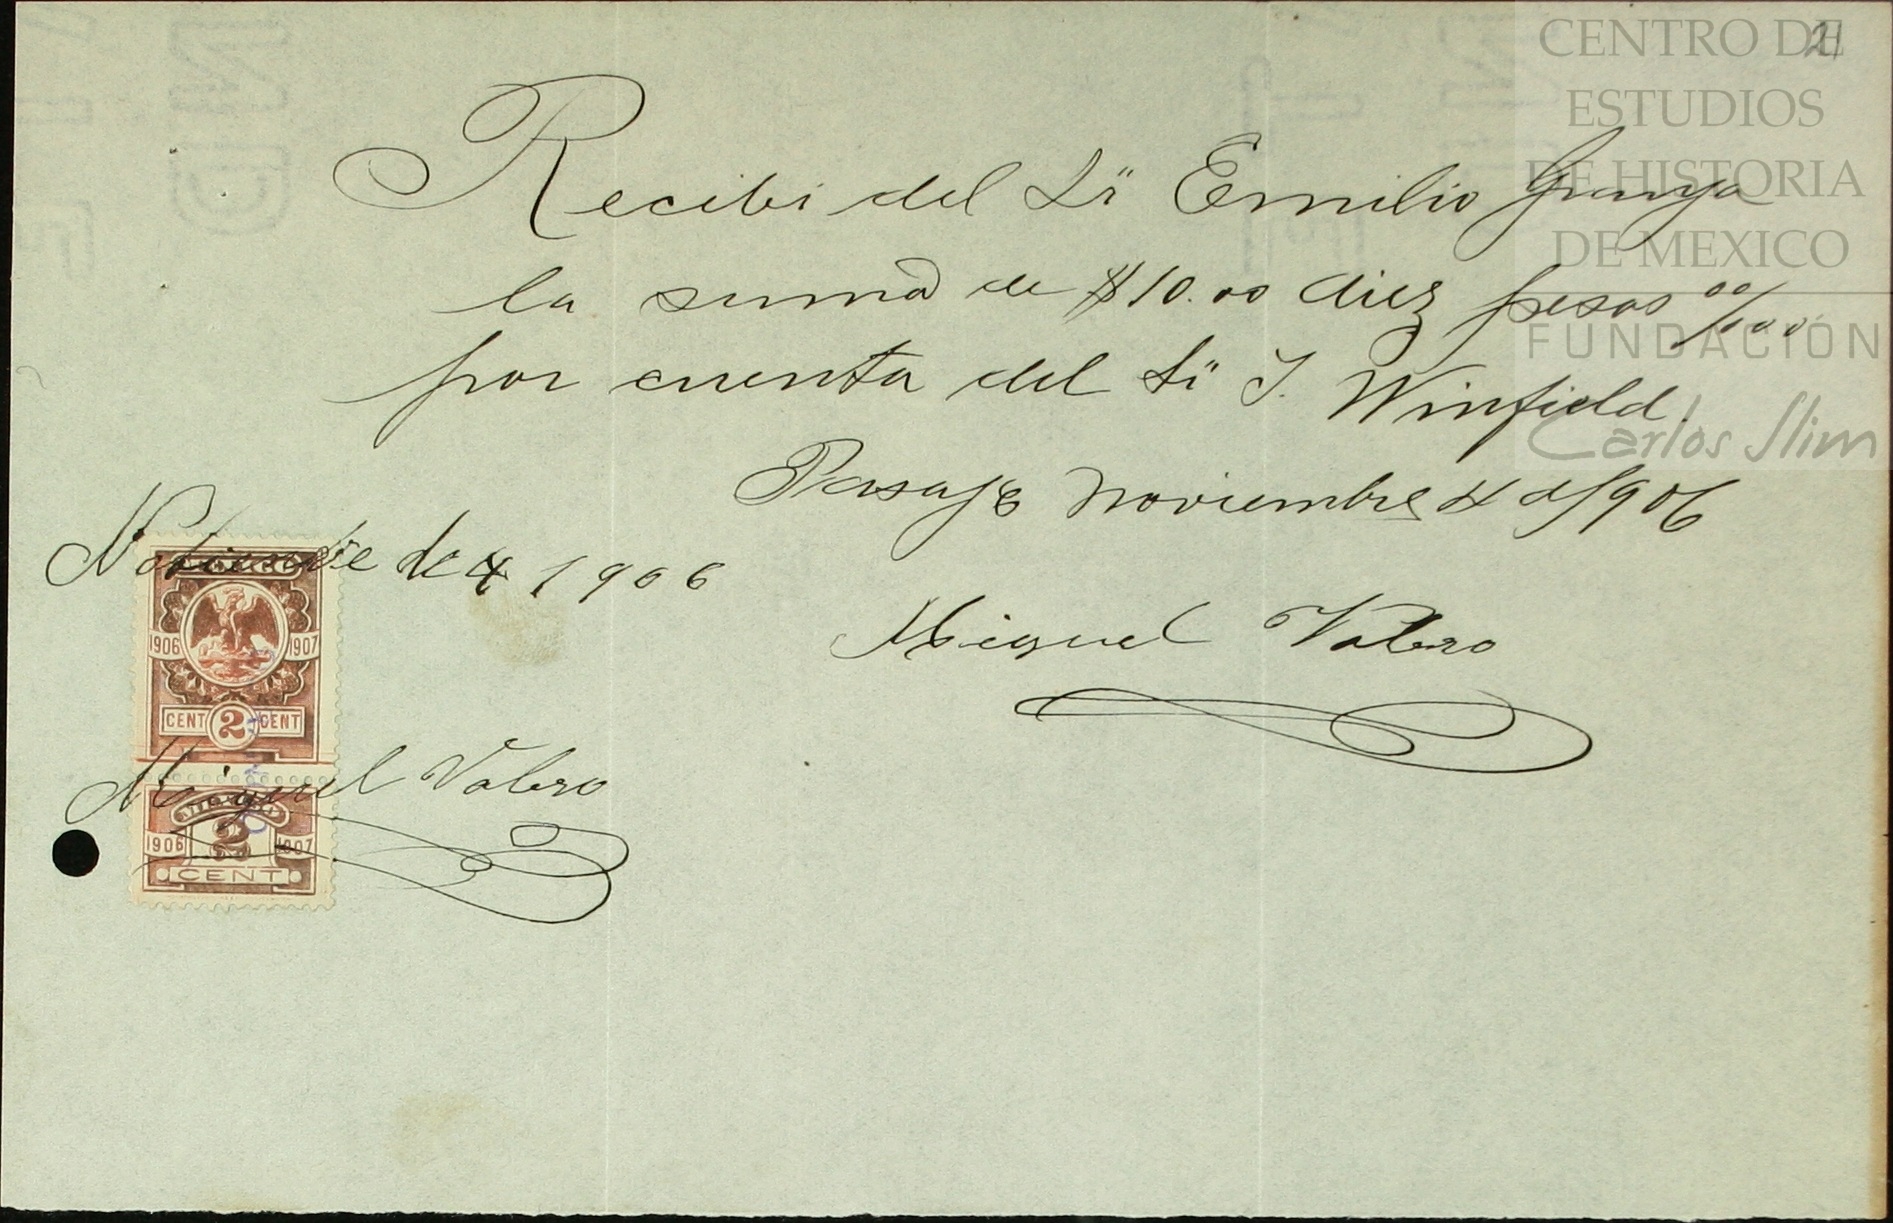 21
CENTRO DE
ESTUDIOS
DE HISTORIA
DE MEXICO
FUNDACIÓN
Carlos Slim
Recibi del Sr Emilio Granja
la suma de $10.00 diez pesos 00/000
por cuenta del Sr J. Winfield.
Pasaje Noviembre 4 de/906
Miguel Valero
Nobienbre de 4 1906
1906 1907
CENT 2 CENT
Miguel Valero
2
1906 1907
CENT